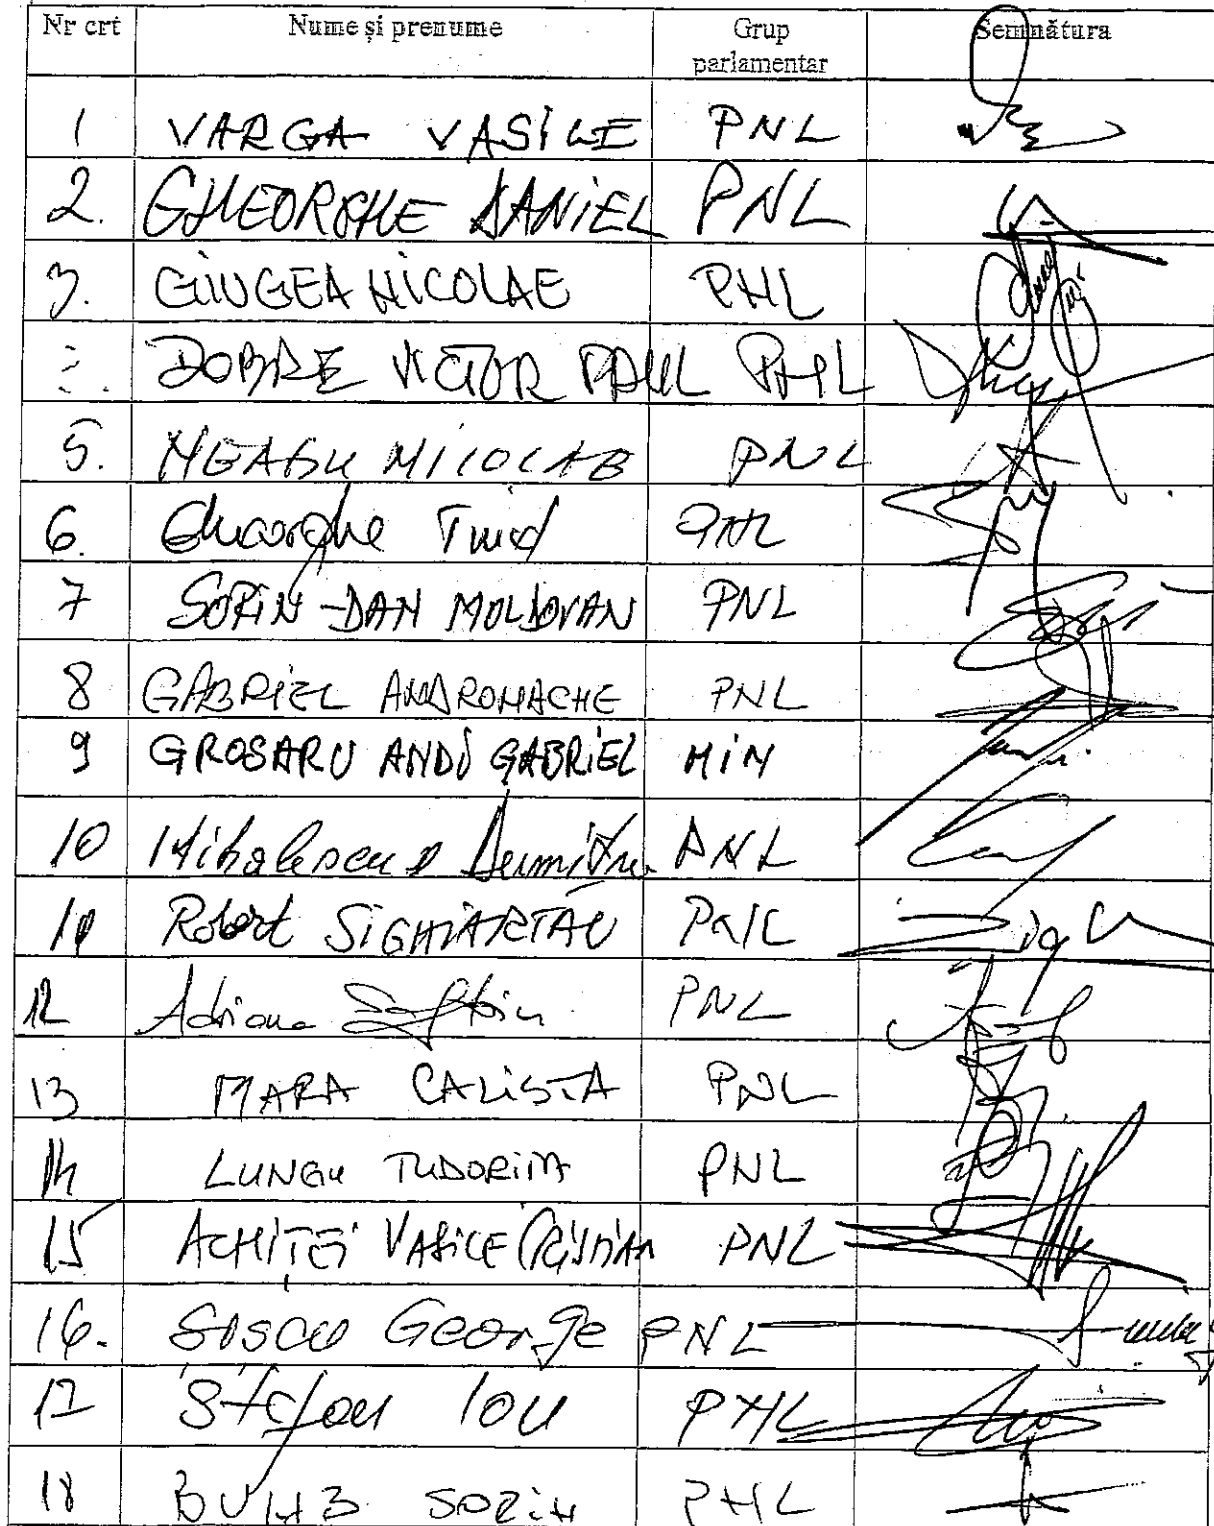 Nr crt Nume și prenume Grup parlamentar Semnătura
1 VARGA VASILE PNL
2. GHEORGHE DANIEL PNL
3. GIUGEA NICOLAE PNL
DOBRE VICTOR PAUL PNL
5. NEAGU NICOLAE PNL
6. Gheorghe Tinel PNL
7 SORIN-DAN MOLDOVAN PNL
8 GABRIEL ANDRONACHE PNL
9 GROSARU ANDI GABRIEL MIN
10 Mihalescul Dumitru PNL
11 Robert SIGHIARTĂU PNL
12 Adriana Săftoiu PNL
13 MARA CALISTA PNL
14 LUNGU TUDORIȚA PNL
15 ACHIȚEI VASILE CRISTIAN PNL
16. SCUTARU George PNL
17 Ștefan Ion PNL
18 BUMB SORIN PNL